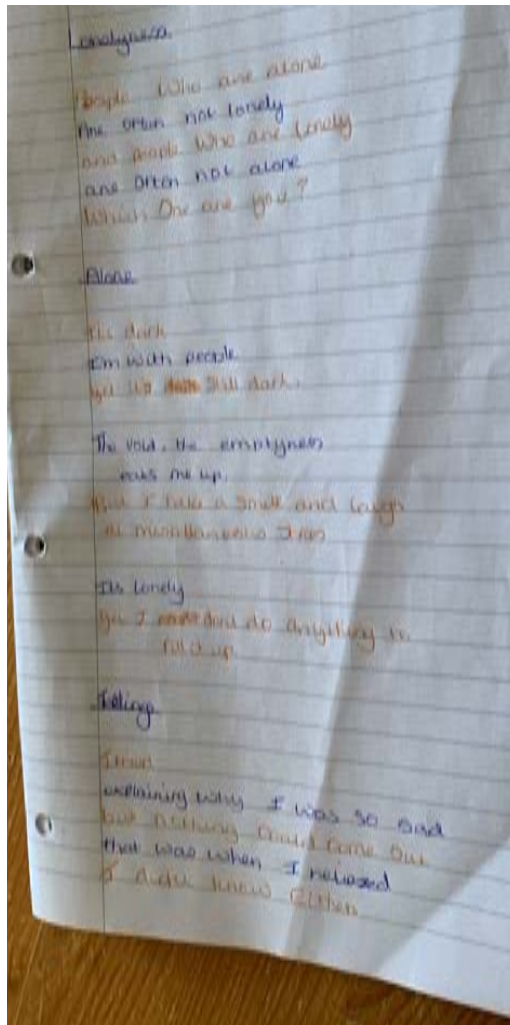 Lonelyness
People Who are alone
Are often not lonely
and people Who are lonely
are often not alone
Which One are you?
Alone
It's dark
I'm with people
yet it's still dark.
The void, the emptyness
eats me up.
But I fake a smile and laugh
at
Its lonely
yet I dont do anything to
fill it up
Feling
I tried
explaining why I was so sad
but nothing could come out
that was when I
I didn't know Either